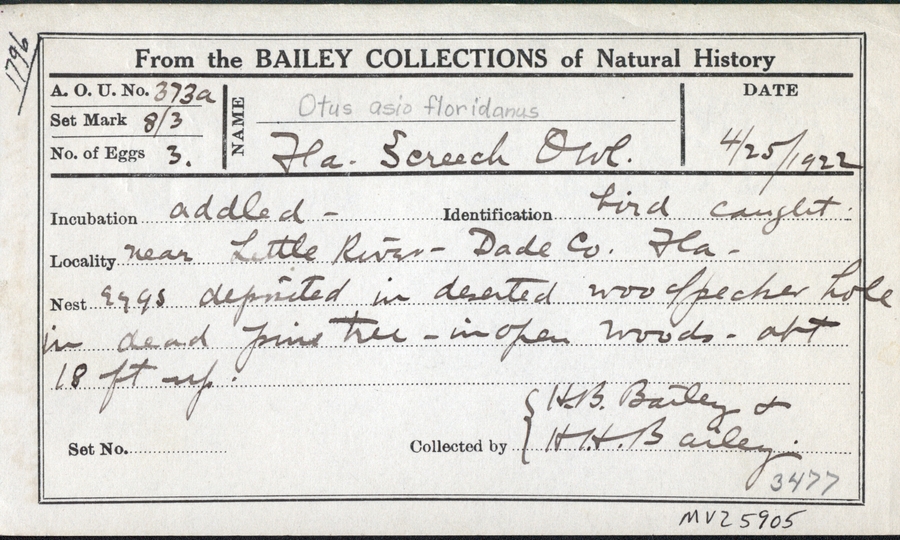 1796
From the BAILEY COLLECTIONS of Natural History
A. O. U. No. 373a
Set Mark 8/3
No. of Eggs 3.
NAME
Otus asio floridanus
Fla. Screech Owl.
DATE
4/25/1922
Incubation addled - Identification bird caught.
Locality near Little River - Dade Co. Fla -
Nest Eggs deposited in deserted woodpecker hole
in dead pine tree - in open woods - abt
18 ft up.
Set No. Collected by { H.B. Bailey &
H.H. Bailey.
3477
MVZ 5905